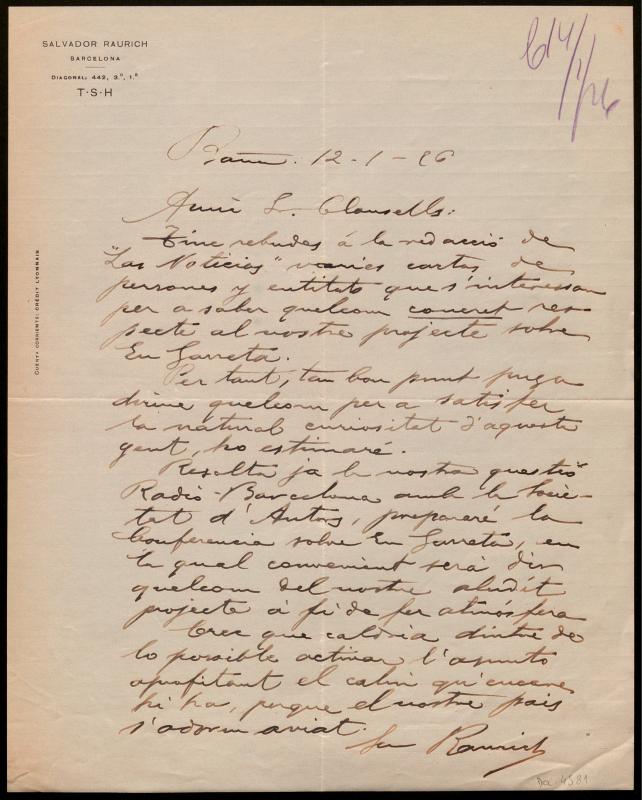 SALVADOR RAURICH
BARCELONA
DIAGONAL: 442, 3.º, 1.ª
T·S·H
14/1/26
CUENTA CORRIENTE: CRÉDIT LYONNAIS
12-1-26
Amic L. Clausells:
Tinc rebudes á la redacció de
"Las Noticias" varies cartas de
persones y entitats que s'interessan
per a saber quelcom concret res-
pecte al nostre projecte sobre
En Garreta.
Per tant, tan bon punt puga
dirme quelcom per a satisfer
la natural curiositat d'aquesta
gent, ho estimaré.
Resolta ja la nostra questió
Radio-Barcelona amb la Socie-
tat d'Autors, prepararé la
Conferencia sobre En Garreta, en
la qual convenient será dir
quelcom del nostre aludit
projecte á fi de fer atmósfera
Crec que caldria dintre de
lo possible activar l'asunto
aprofitant el caliu qu'encare
hi ha, perque el nostre pais
s'adorm aviat.
Raurich
Doc. 4581